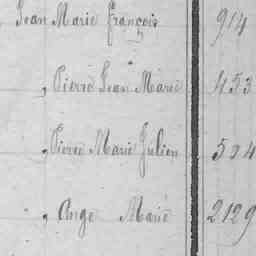 Jean Marie François 914
„ Pierre Jean Marie 453
„ Pierre Marie Julien 594
„ Ange Marie 2129